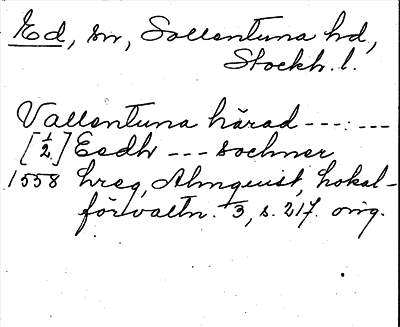 Ed, sn, Sollentuna hd,
Stockh. l.
Vallentuna härad ---:---
[½] Eedh --- sochner
1558 hreg, Almquist, Lokal-
förvaltn. 1/3, s. 217. orig.